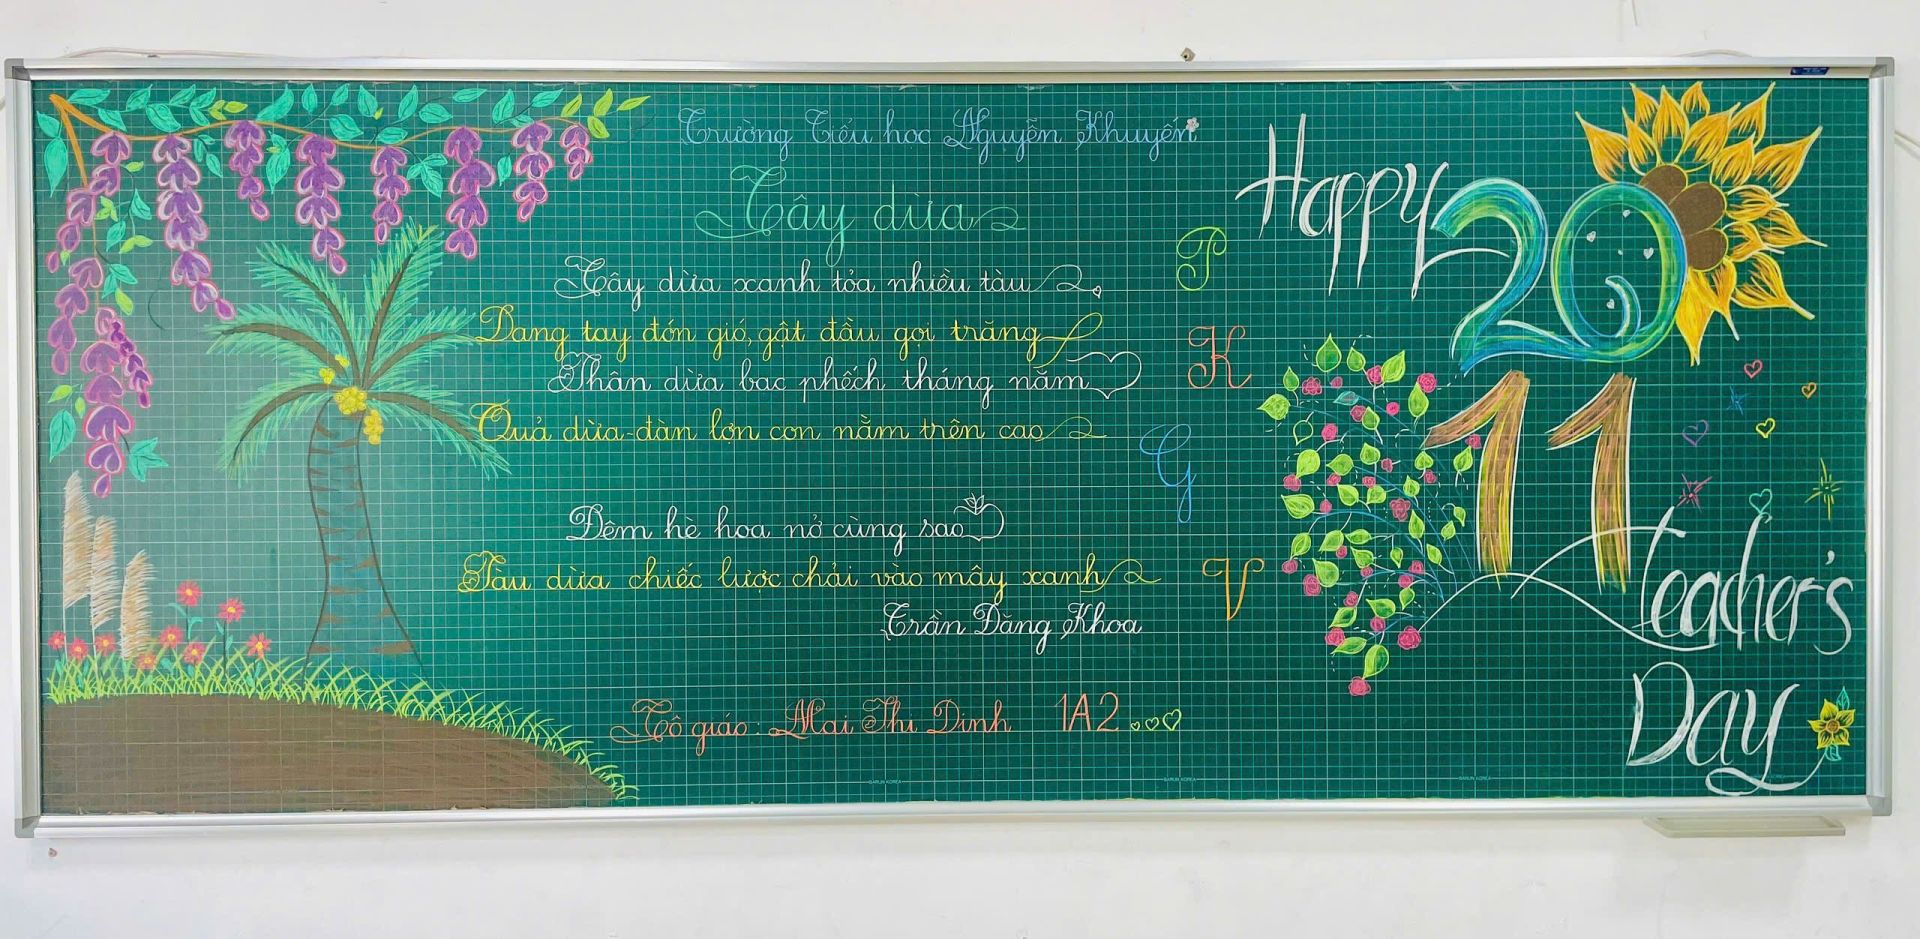 Trường Tiểu học Nguyễn Khuyến
Cây dừa
Cây dừa xanh tỏa nhiều tàu
Dang tay đón gió, gật đầu gọi trăng
Thân dừa bạc phếch tháng năm
Quả dừa-đàn lợn con nằm trên cao
Đêm hè hoa nở cùng sao
Tàu dừa chiếc lược chải vào mây xanh
Trần Đăng Khoa
Cô giáo: Mai Thị Dinh 1A2
P
K
G
V
Happy
20
11
Teacher's
Day
BARUN KOREA
BARUN KOREA
BARUN KOREA